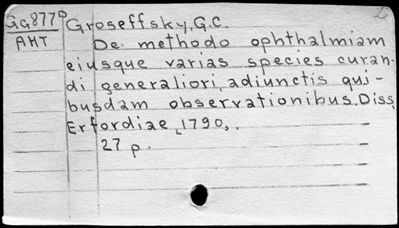 GG877D Groseffsky, G.C.
AHT
De methodo ophthalmiam
eiusque varias species curan-
di generaliori, adiunctis qui-
busdam observationibus. Diss.
Erfordiae, 1790,.
27 p.